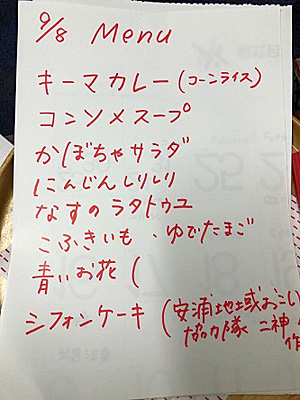 9/8 Menu
キーマカレー(コーンライス)
コンソメスープ
かぼちゃサラダ
にんじんしりしり
なすのラタトゥユ
こふきいも、ゆでたまご
青いお花 (
シフォンケーキ (安浦地域おこし
協力隊 二神
作